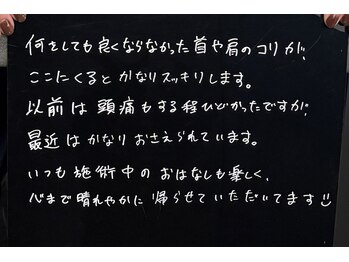 何をしても良くならなかった首や肩のコリが、
ここにくるとかなりスッキリします。
以前は頭痛もする程ひどかったですが、
最近はかなりおさえられています。
いつも施術中のおはなしも楽しく、
心まで晴れやかに帰らせていただいてます